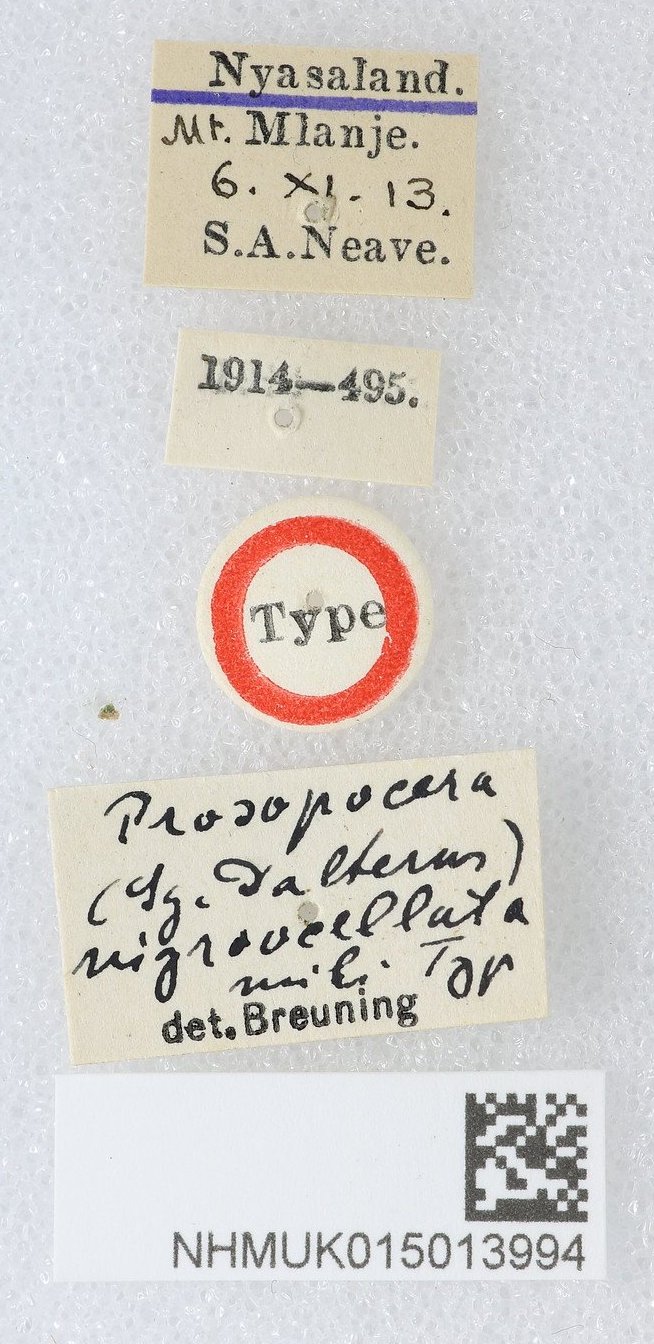 Nyasaland.
Mt. Mlanje.
6. XI. 13.
S.A.Neave.
1914—495.
Type
Prosopocera
(Sg. Dalterus)
nigroocellata
mihi Typ
det. Breuning
NHMUK015013994